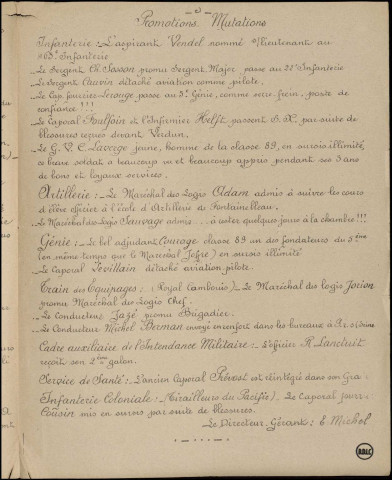 - 3 -
Promotions. Mutations
Infanterie : L'aspirant Vendel nommé s/lieutenant au
163e Infanterie
- Le Sergent Ch. Sosson promu Sergent Major passe au 22e Infanterie
- Le Sergent Cauvin détaché aviation comme pilote.
- Le Cap. fourrier Lerouge passe au 5e Génie, comme serre-frein, poste de
confiance !!!
- Le Caporal Foulfoin et l'Infirmier Helft passent S.X. par suite de
blessures reçues devant Verdun.
- Le G. V. C. Laverge jeune, homme de la classe 89, en sursis illimité
ce brave soldat a beaucoup vu et beaucoup appris pendant ses 3 ans
de bons et loyaux services.
Artillerie : Le Maréchal des Logis Adam admis à suivre les cours
d'élève officier à l'école d'Artillerie de Fontainebleau.
- Le Maréchal des Logis Sauvage admis.... à rester quelques jours à la chambre !!!
Génie : - Le bel adjudant Courage classe 89 un des fondateurs du 5ème
(en même temps que le Maréchal Joffre) en sursis illimité
- Le Caporal Levillain détaché aviation pilote.
Train des Equipages : (Royal Cambouis) - Le Maréchal des logis Jorion
promu Maréchal des Logis Chef.
- Le Conducteur Jazé promu Brigadier.
- Le Conducteur Michel Berman envoyé en renfort dans les bureaux à
Cadre auxiliaire de l'Intendance Militaire : - L'officier R. Landruit
reçoit son 2ème galon.
Service de Santé : L'ancien Caporal Prévost est réintégré dans son Gra
Infanterie Coloniale : - (Tirailleurs du Pacifie) - Le Caporal jour :
Cousin mis en sursis par suite de blessures.
Le Directeur-Gérant : E Michel
ABLC